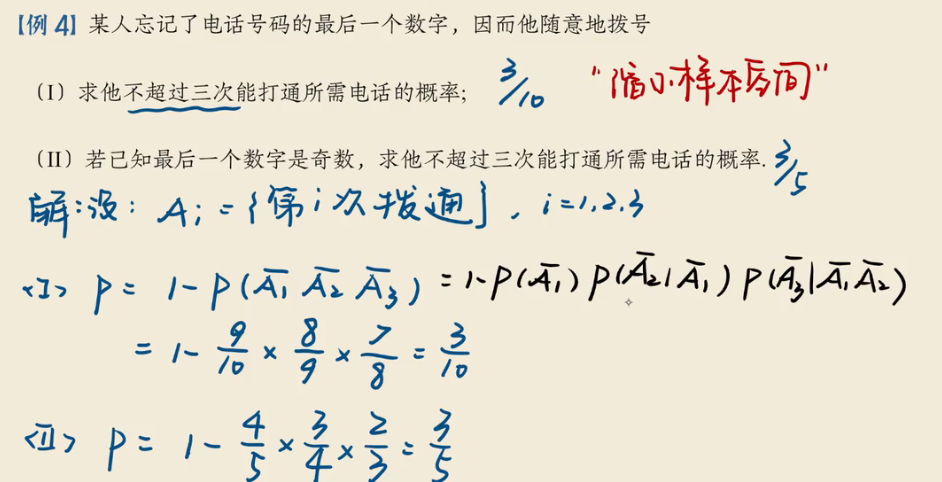 【例 4】某人忘记了电话号码的最后一个数字，因而他随意地拨号
（I）求他不超过三次能打通所需电话的概率； 3/10 “缩小样本空间”
（II）若已知最后一个数字是奇数，求他不超过三次能打通所需电话的概率. 3/5
解：设：Aᵢ = {第 i 次拨通}，i=1,2,3
<I> P = 1-P(A̅₁ A̅₂ A̅₃) = 1-P(A̅₁) P(A̅₂|A̅₁) P(A̅₃|A̅₁A̅₂)
= 1- 9/10 × 8/9 × 7/8 = 3/10
<II> P = 1- 4/5 × 3/4 × 2/3 = 3/5